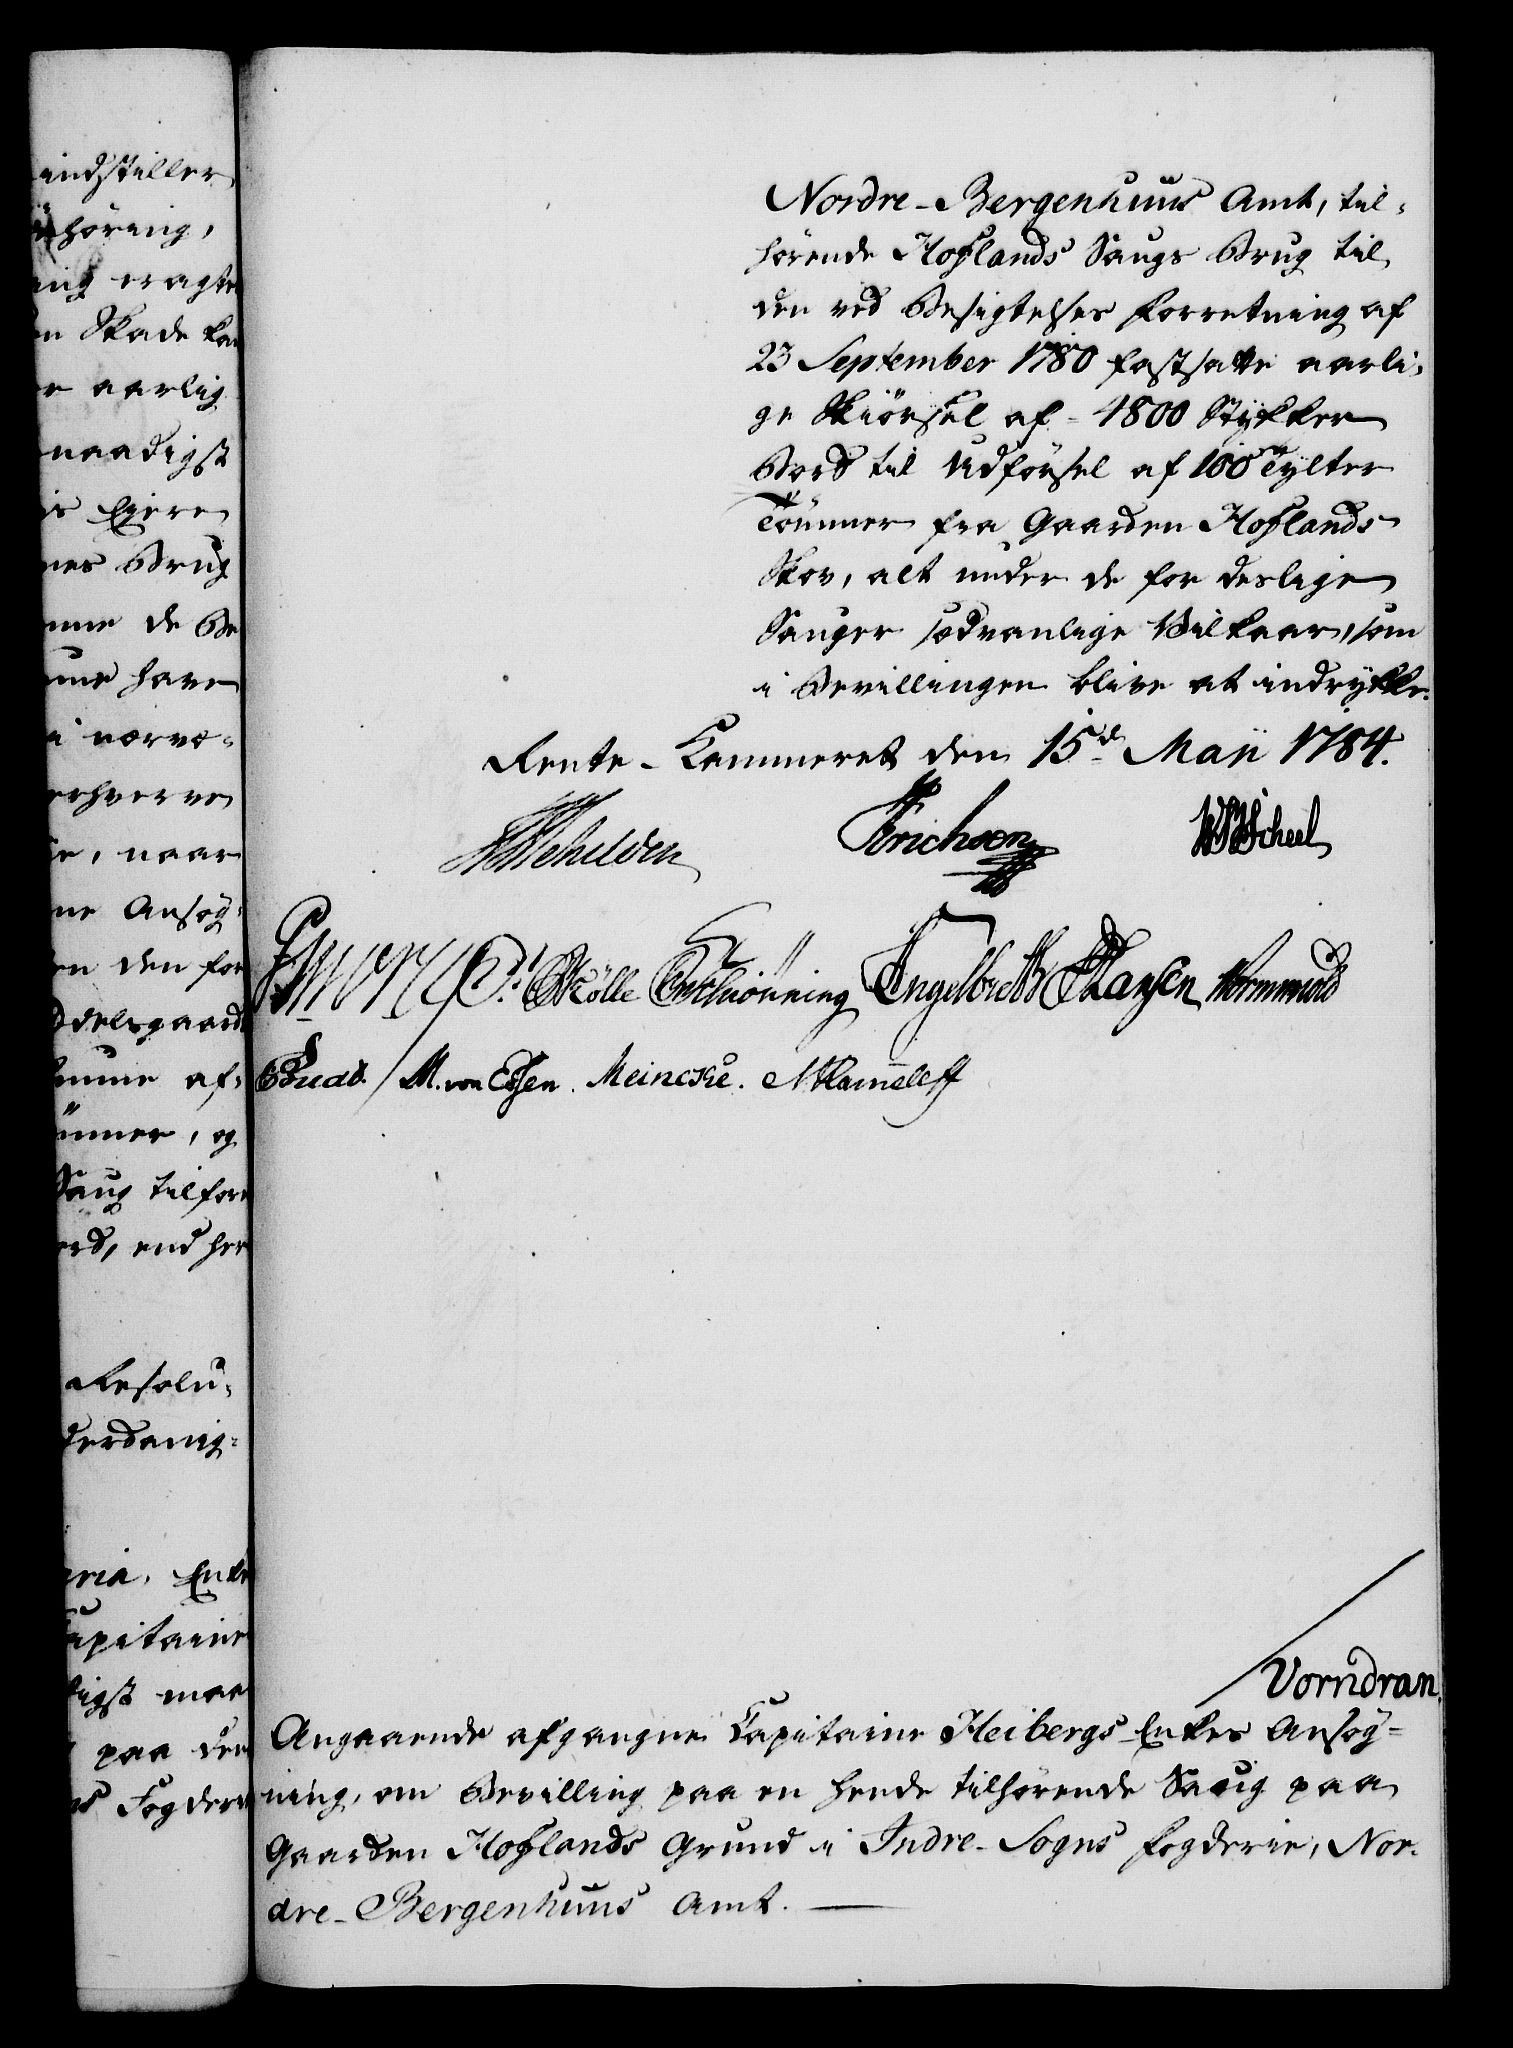 indstiller
høring,
ing eragte
en Skade kan
er aarlig
naadigst
is Ejere
nes Brug
nne de Be
nne have
i nærvæ-
erhverve
e, naar
ne Ansøg-
en den for
ddelsgaard
unne af-
ünner, og
Saug tilfor
ord, end her
Resolu-
derdanig-
aria, Enke
Capitaine
digst maa
paa den
ns Fogderie
Nordre-Bergenhuus Amt, til-
hørende Hoflands Saugs Brug til
den ved Besigtelses Forretning af
23 September 1780 fastsatte aarli-
ge Skiørsel af 4800 Stykker
Bord til Udførsel af 100 Tylter
Tønner fra Gaarden Hoflands
Skov, alt under de for deslige
Sauger sædvanlige Vilkaar, som
i Bevillingen blive at indrykke.
Rente-Kammeret den 15d Maji 1784.
Schilden Erichson Scheel
Skölle Tnschiønning Engelbreth Hansen Wormskiold
Budt. M. von Essen. Meincke. Kameleff
Vorndran.
Angaaende afgangne Capitaine Heibergs Enkes Ansøg-
ning, om Bevilling paa en hende tilhørende Saug paa
Gaarden Hoflands Grund i Indre-Sogns Fogderie, Nor-
dre-Bergenhuus Amt.